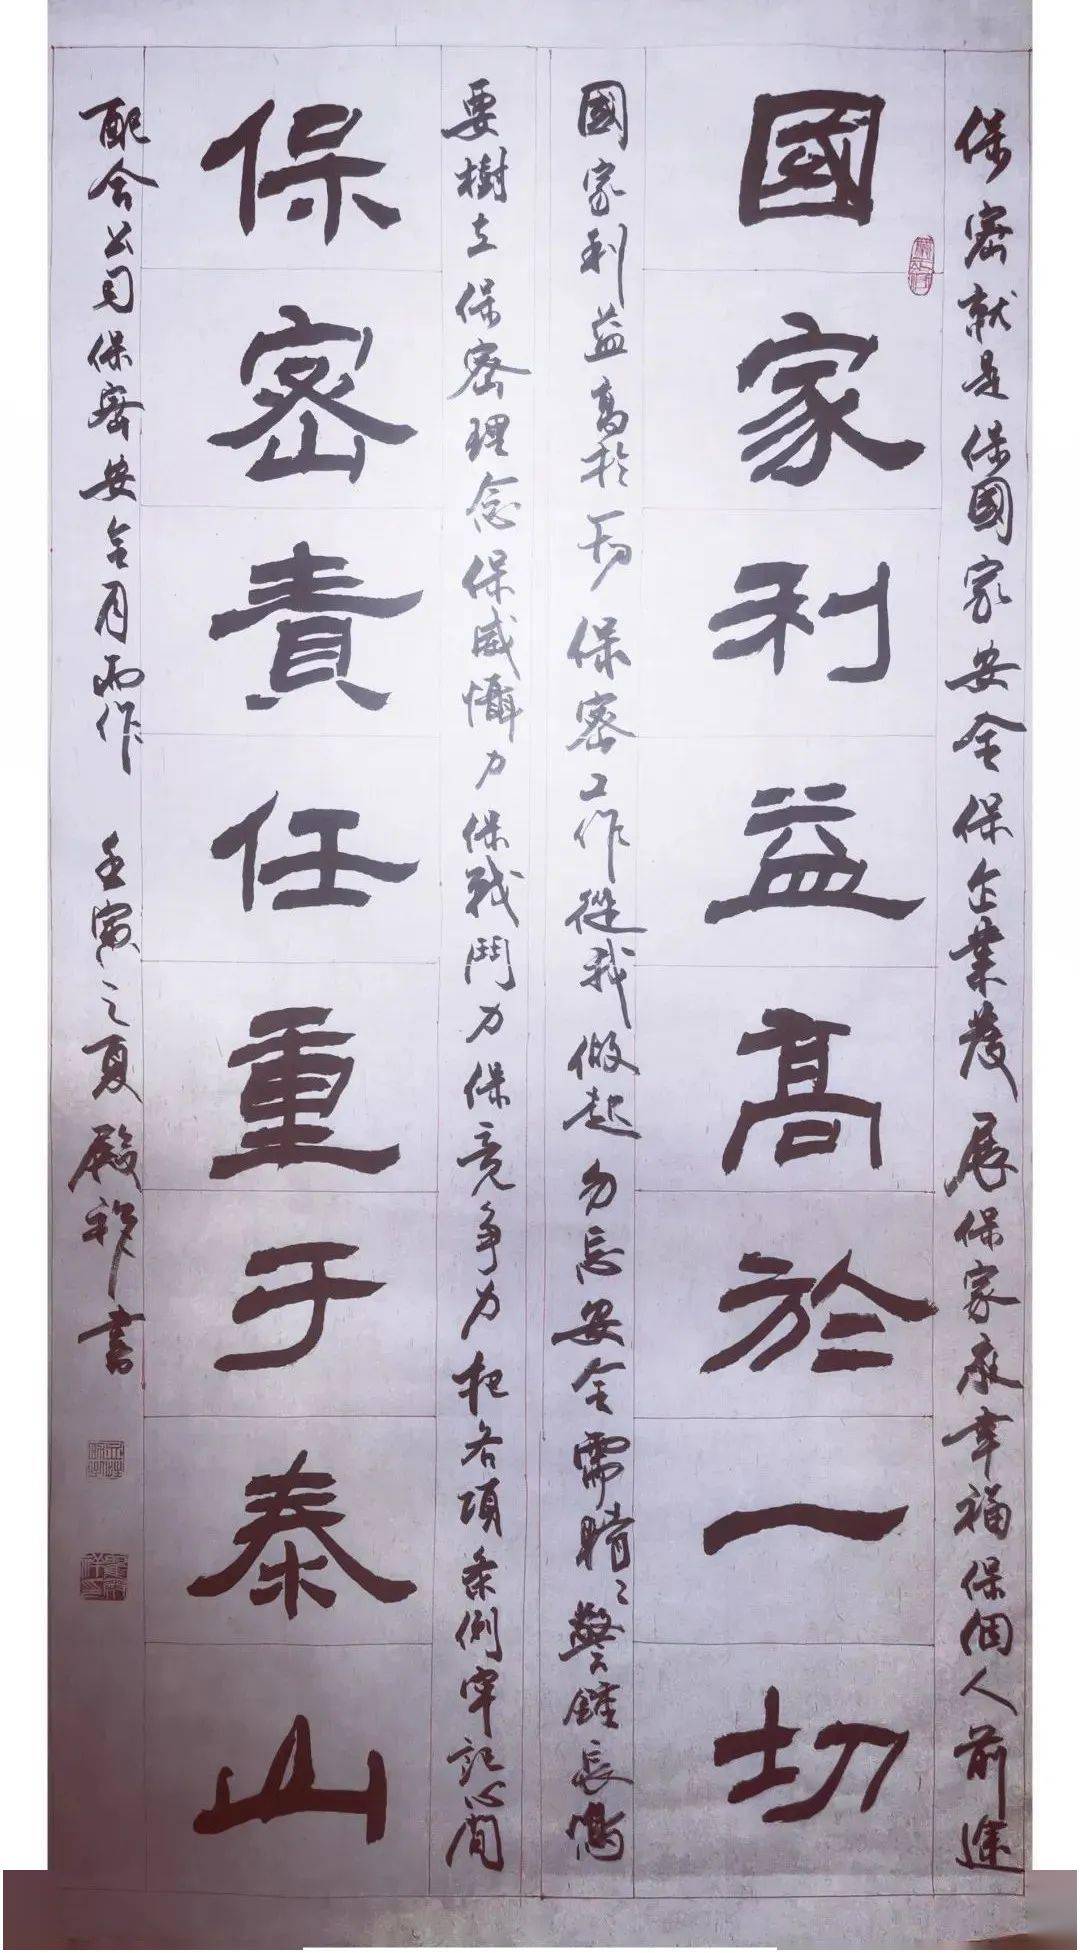 保密就是保國家安全保企業發展保家庭幸福保個人前途
國家利益高於一切
國家利益高於一切保密工作從我做起勿忘安全需晴〻警鐘長鳴
要樹立保密理念保威懾力保戰鬥力保競争力把各項条例牢記心間
保密責任重于泰山
配合公司保密安全月而作 壬寅之夏 殿 書